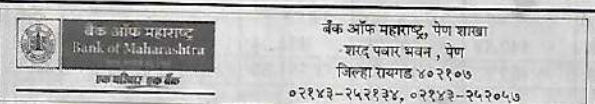 बैंक ऑफ महाराष्ट्र
Bank of Maharashtra
एक परिवार एक बैंक
बँक ऑफ महाराष्ट्र, पेण शाखा
शरद पवार भवन , पेण
जिल्हा रायगड ४०२१०७
०२१४३-२५२१३४, ०२१४३-२५२०५७